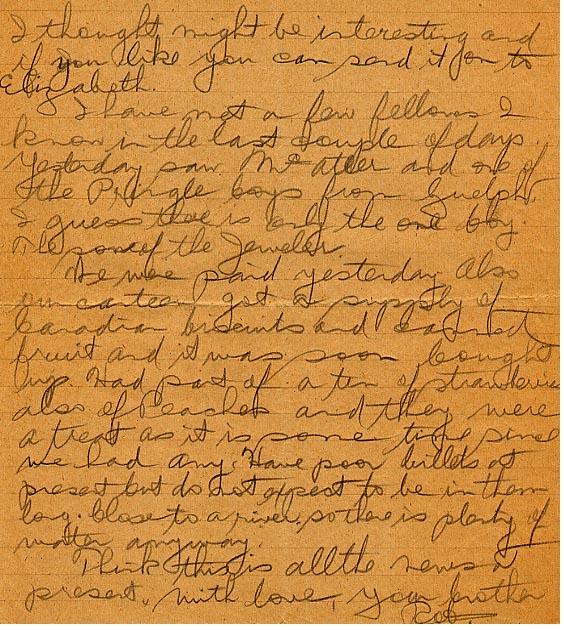 I thought might be interesting and
if you like you can send it on to
Elizabeth.
I have met a few fellows I
know in the last couple of days.
Yesterday saw and one of
the Pringle boys from Guelph.
I guess there is only the one boy.
The son of the Jeweler.
We were paid yesterday Also
our canteen got a supply of
Canadian biscuits and canned
fruit and it was soon bought
up. Had part of a tin of strawberries
also of Peaches and they were
a treat as it is some time since
we had any. Have poor billets at
present but do not expect to be in them
long. Close to a river so there is plenty of
water anyway.
Think this is all the news at
present, with love, your brother